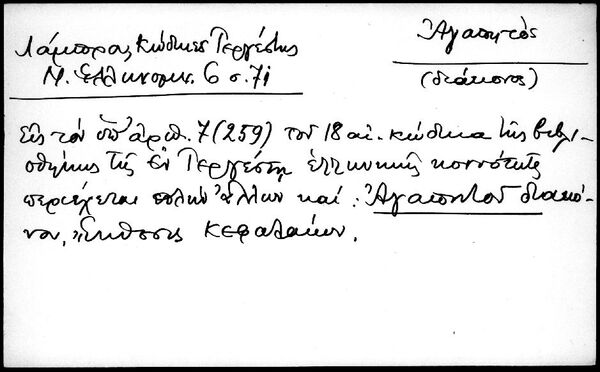 Λάμπρος Κώδικες Τεργέστης
Ν. Ἑλληνομν. 6 σ. 71
Ἀγαπητός
(διάκονος)
Εἰς τόν ὑπ' ἀριθ. 7 (259) τοῦ 18 αἰ. κώδικα τῆς βιβλι-
οθήκης τῆς ἐν Τεργέστῃ ἑλληνικῆς κοινότητος
περιέχεται πλήν ἄλλων καί: Ἀγαπητοῦ διακό-
νου, "Ἔκθεσις κεφαλαίων.